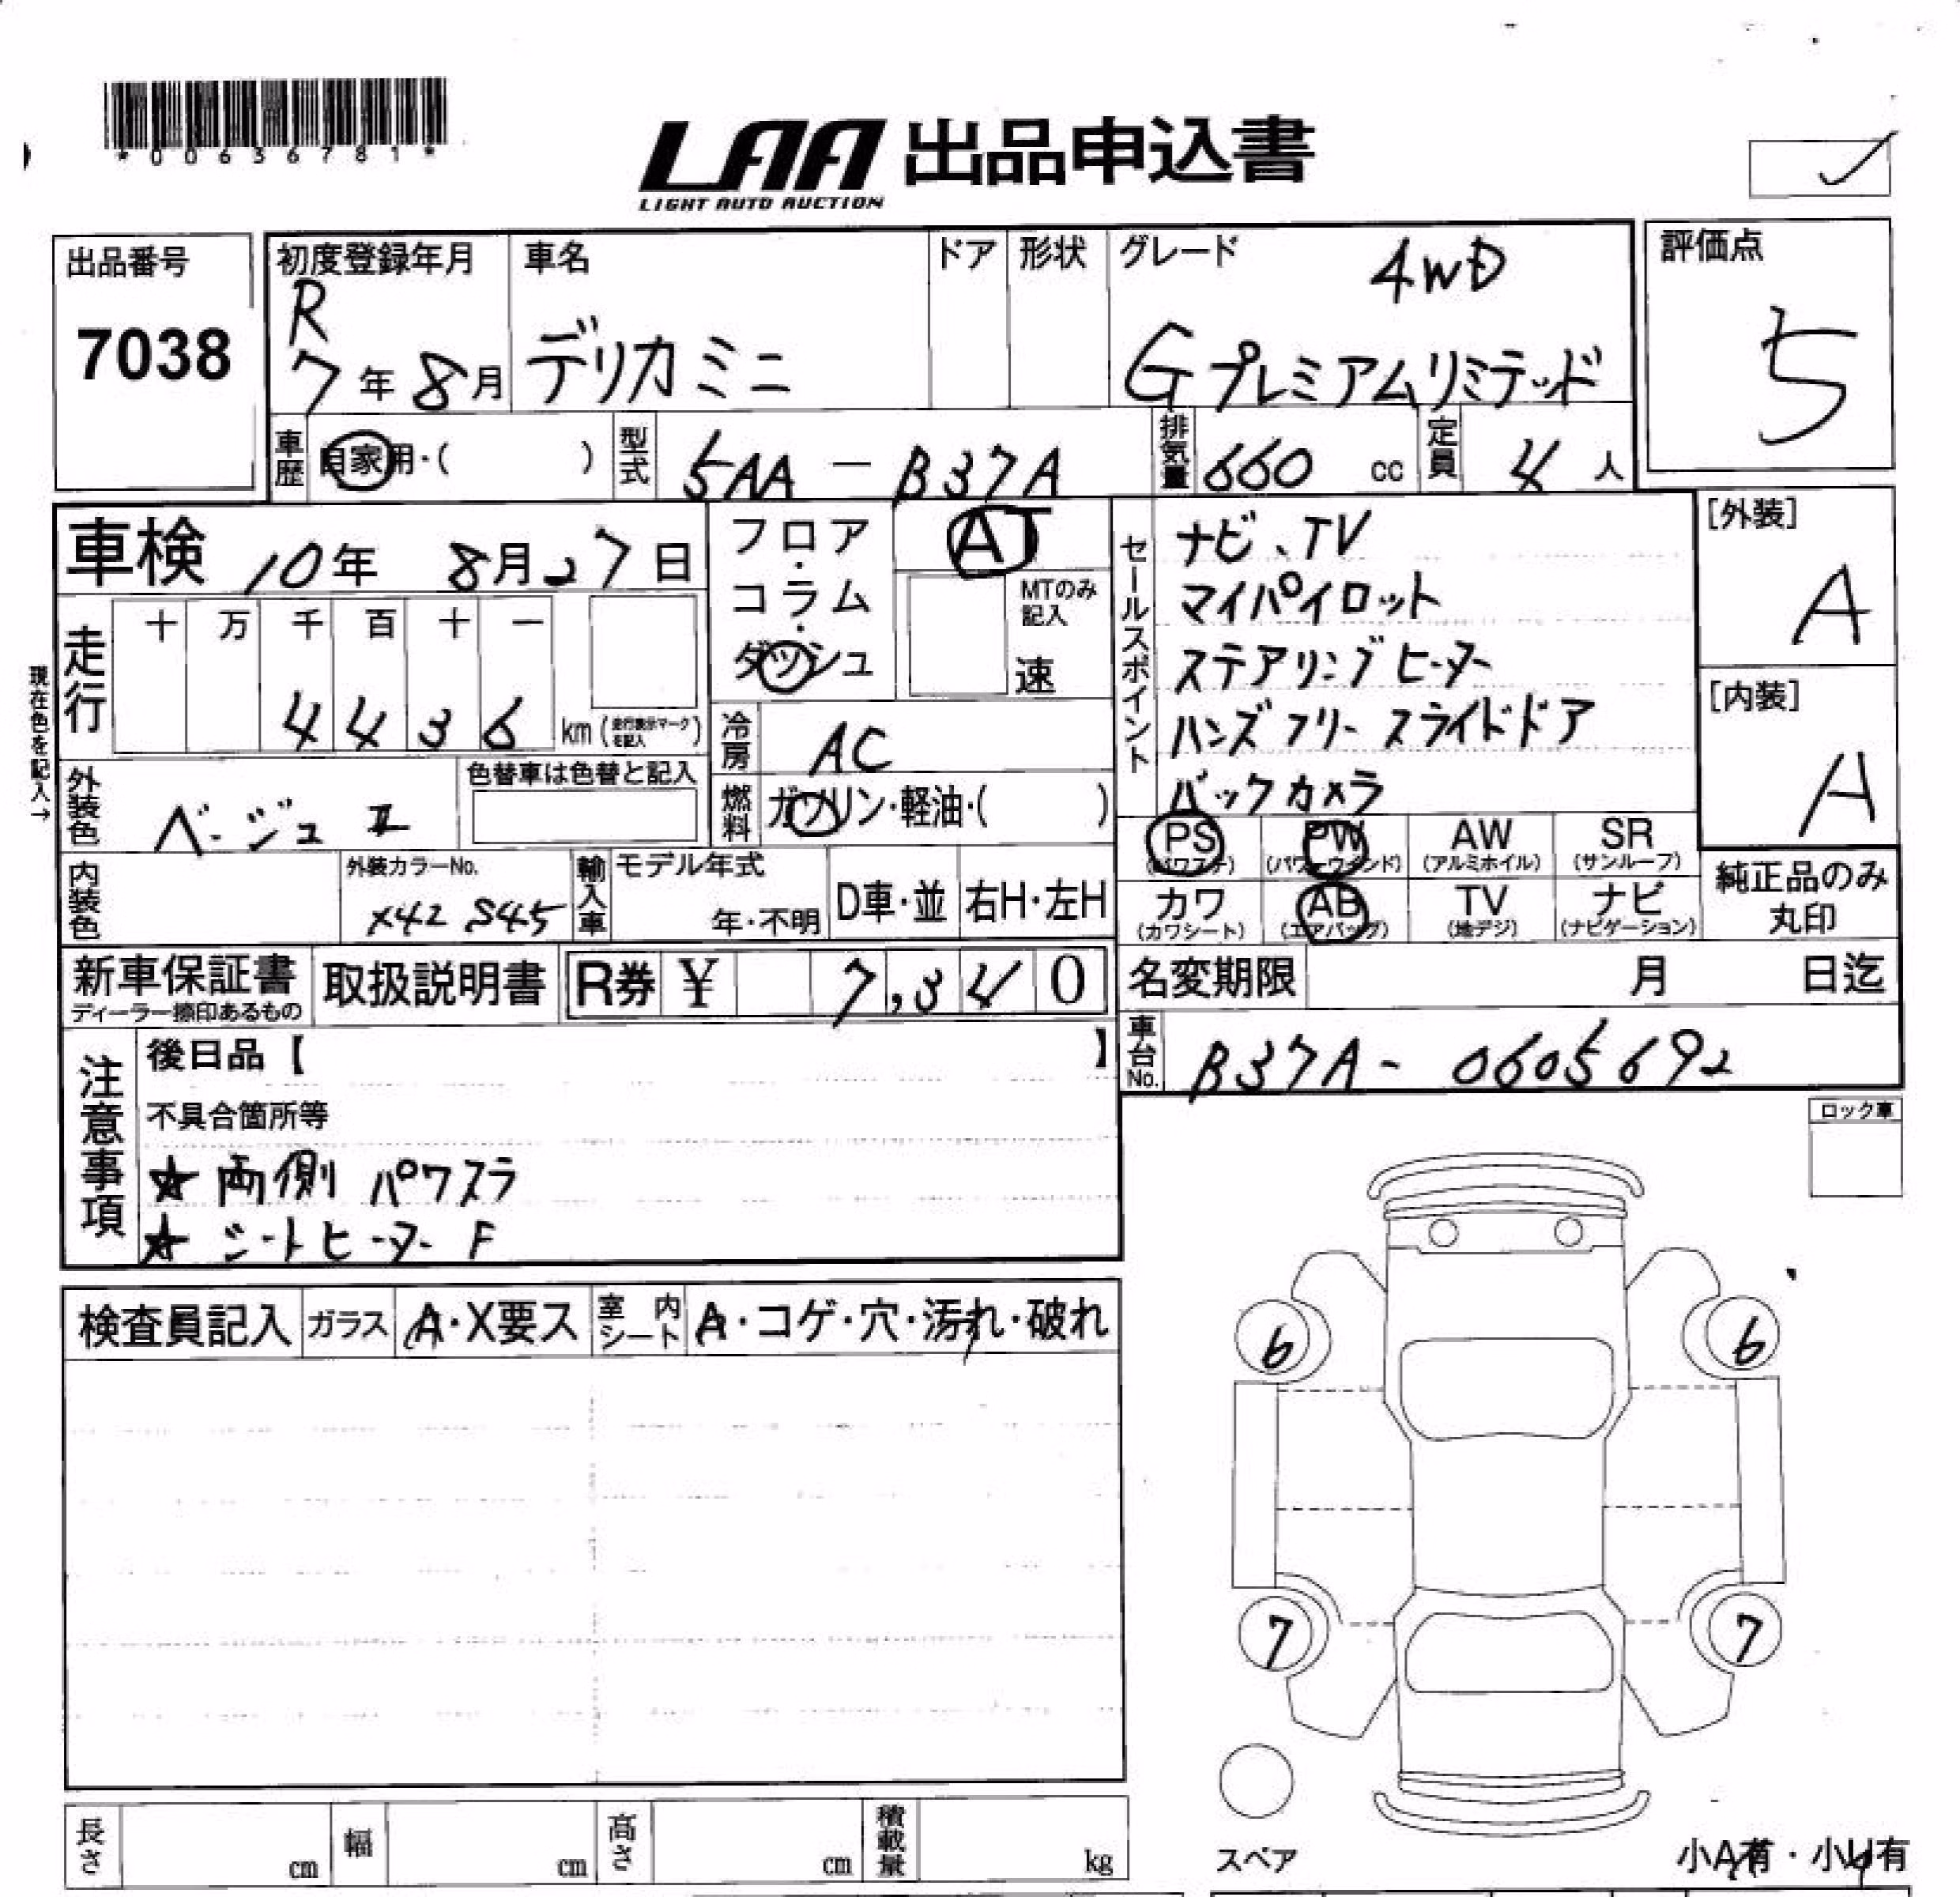 *00636781*
LAA 出品申込書
LIGHT AUTO AUCTION
出品番号
7038
初度登録年月
R
7年8月
車名
デリカミニ
ドア
形状
グレード
4WD
Gプレミアムリミテッド
評価点
5
車歴
自家用・( )
型式
5AA-B37A
排気量
660 cc
定員
4 人
車検 10年 8月27日
フロア・コラム・ダッシュ
AT
MTのみ記入
速
セールスポイント
ナビ、TV
マイパイロット
ステアリングヒーター
ハンズフリースライドドア
バックカメラ
[外装]
A
[内装]
A
現在色を記入→
走行
十 万 千 百 十 一
4 4 3 6 km (走行表示マークを記入)
冷房
AC
外装色
ベージュ II
色替車は色替と記入
燃料
ガソリン・軽油・( )
PS (パワステ)
PW (パワーウインド)
AW (アルミホイル)
SR (サンルーフ)
内装色
外装カラーNo.
X42 S45
輸入車
モデル年式
年・不明
D車・並
右H・左H
カワ (カワシート)
AB (エアバッグ)
TV (地デジ)
ナビ (ナビゲーション)
純正品のみ丸印
新車保証書
ディーラー捺印あるもの
取扱説明書
R券 ¥ 7,340
名変期限 月 日迄
注意事項
後日品【 】
不具合箇所等
★ 両側 パワスラ
★ シートヒーター F
車台No.
B37A-0605692
ロック車
検査員記入
ガラス
A・X要ス
室内シート
A・コゲ・穴・汚れ・破れ
6
6
7
7
スペア
小A有・小U有
長さ cm
幅 cm
高さ cm
積載量 kg